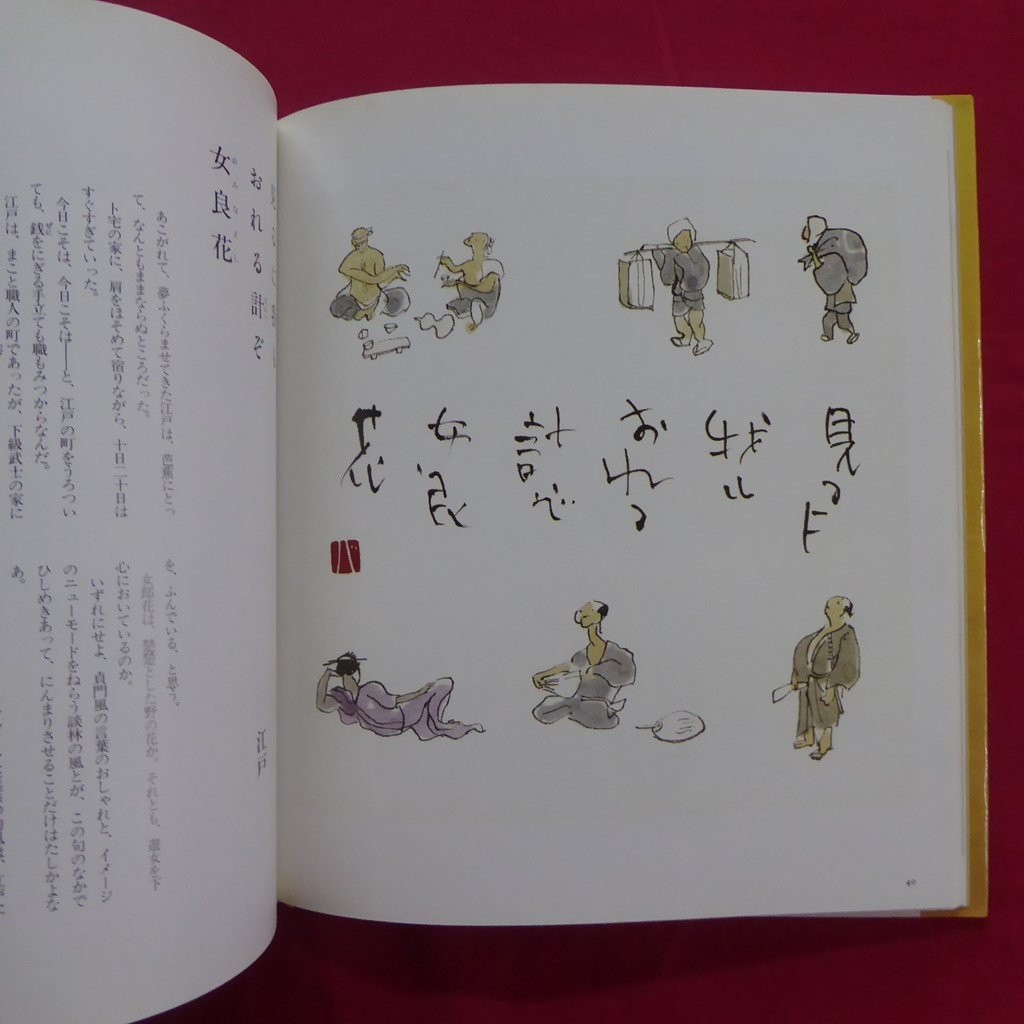 見るに
我も
おれる
計ぞ
女良
花
40
おれる計ぞ
女良花
江戸
あこがれて、夢ふくらませてきた江戸は、芭蕉にとっ
て、なんともままならぬところだった。
卜宅の家に、肩をほそめて宿りながら、十日二十日は
すぐすぎていった。
今日こそは、今日こそは――と、江戸の町をうろつい
ても、銭をにぎる手立ても職もみつからなんだ。
江戸は、まこと職人の町であったが、下級武士の家に
を、ふんでいる、と思う。
女郎花は、楚楚とした野の花か。それとも、遊女を下
心においているのか。
いずれにせよ、貞門風の言葉のおしゃれと、イメージ
のニューモードをねらう談林の風とが、この句のなかで
ひしめきあって、にんまりさせることだけはたしかよな
あ。